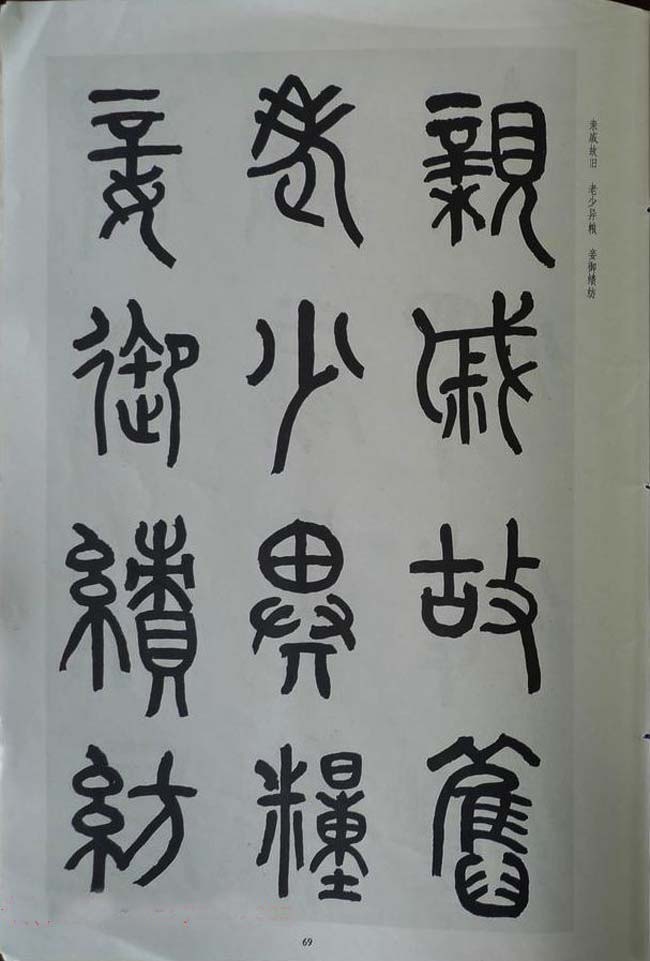 親戚故舊
老少異糧
妾御績紡
亲戚故旧 老少异粮 妾御绩纺
69